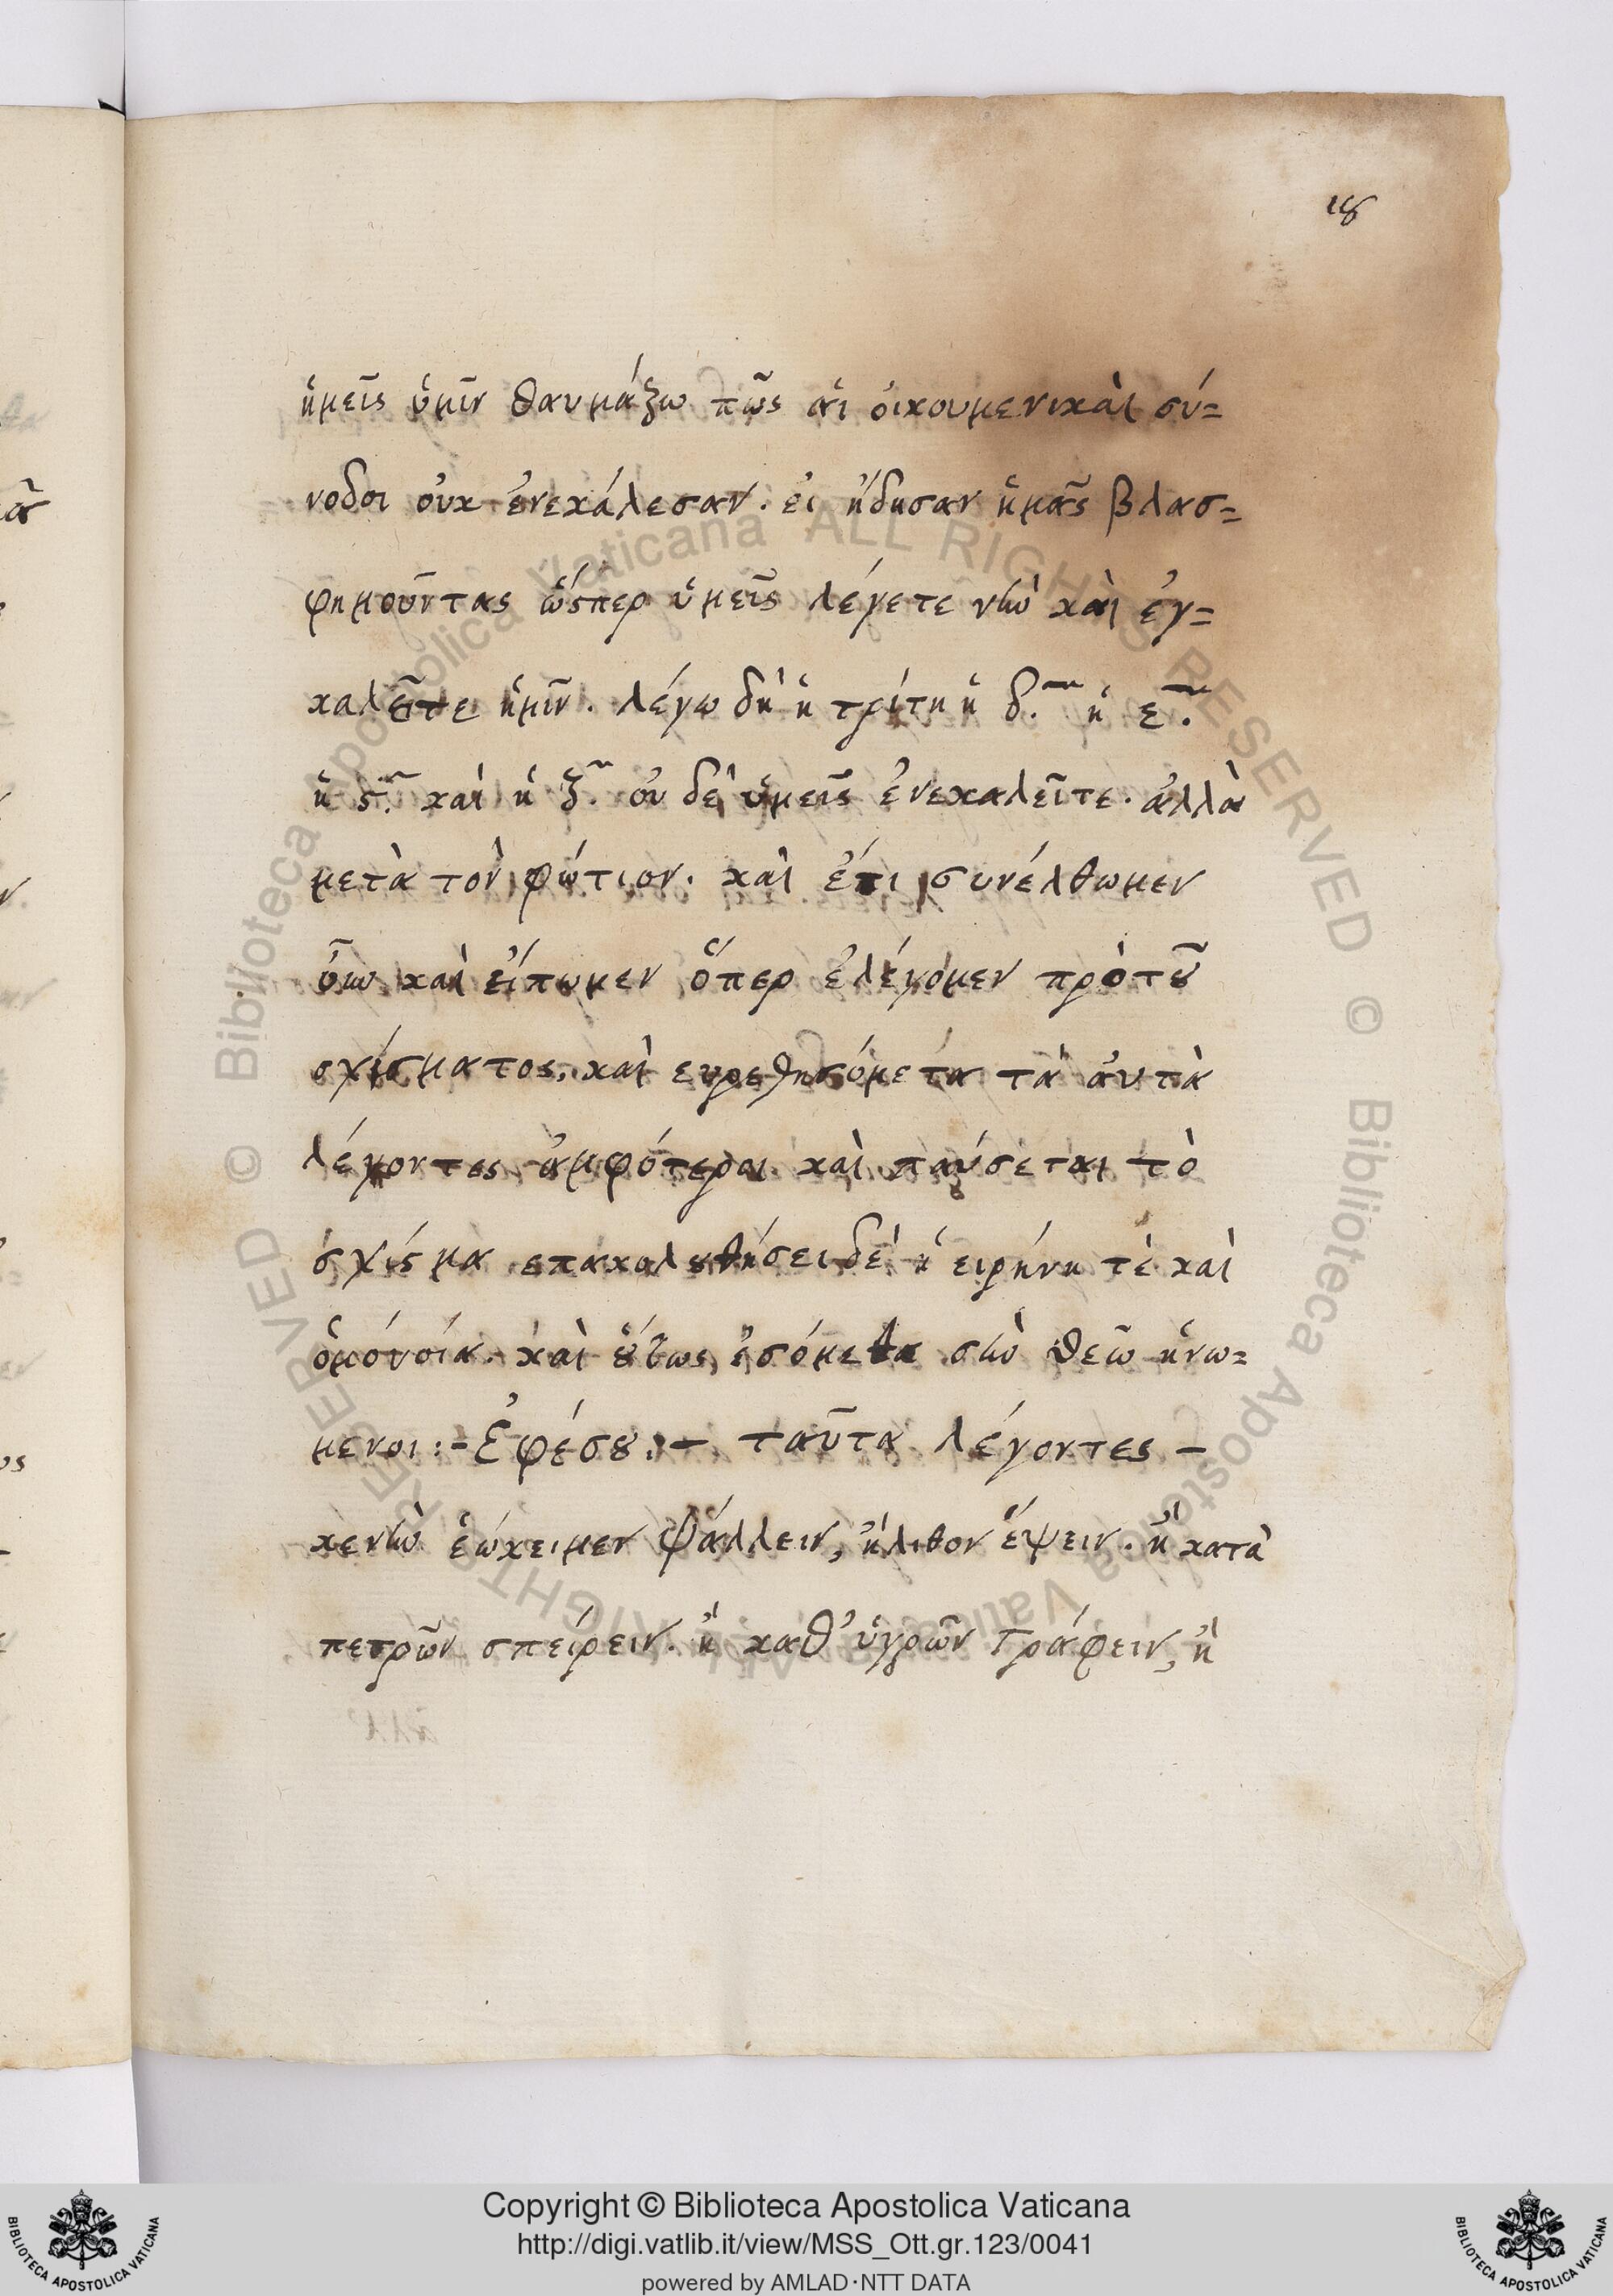 18
ἡμεῖς ὑμῖν θαυμάζω πῶς αἱ ὀικουμενικὰι σύ=
νοδοι οὐκ ἐνεκάλεσαν. ἐι ἤδησαν ἡμᾶς βλασ=
φημοῦντας ὥσπερ ὑμεῖς λέγετε νῦν καὶ ἐγ=
καλεῖτε ἡμῖν. λέγω δὴ ἡ τρίτη ἡ δ. ἡ ε.
ἡ ς. καὶ ἡ ζ. οὐ δὲ ὑμεῖς ἐνεκαλεῖτε. ἀλλὰ
μετὰ τὸν φώτιον. καὶ ἔτι συνέλθωμεν
καὶ εἴπωμεν ὅπερ ἐλέγομεν πρὸ τȣ͂
σχίσματος, καὶ ευρεθησόμετα τὰ ἀυτὰ
λέγοντες ἀμφότεροι καὶ παύσεται τὸ
σχίσμα επακολȣθήσει δὲ ἡ ειρήνη τὲ καὶ
ὁμόνοια. καὶ ȣ̔́τως ἐσόμεθα σὺν θεῶ ἡνω=
μενοι :- Ἐφέσȣ .- ταῦτα λέγοντες -
κενὴν ἐώκειμεν ψάλλειν, ἢ λίθον ἕψειν. ἢ κατὰ
πετρῶν σπείρειν. ἢ καθ' ὑγρῶν γράφειν, ἢ
Copyright © Biblioteca Apostolica Vaticana
http://digi.vatlib.it/view/MSS_Ott.gr.123/0041
powered by AMLAD·NTT DATA
BIBLIOTECA APOSTOLICA VATICANA
BIBLIOTECA APOSTOLICA VATICANA
© Biblioteca Apostolica Vaticana ALL RIGHTS RESERVED © Biblioteca Apostolica Vaticana ALL RIGHTS RESERVED